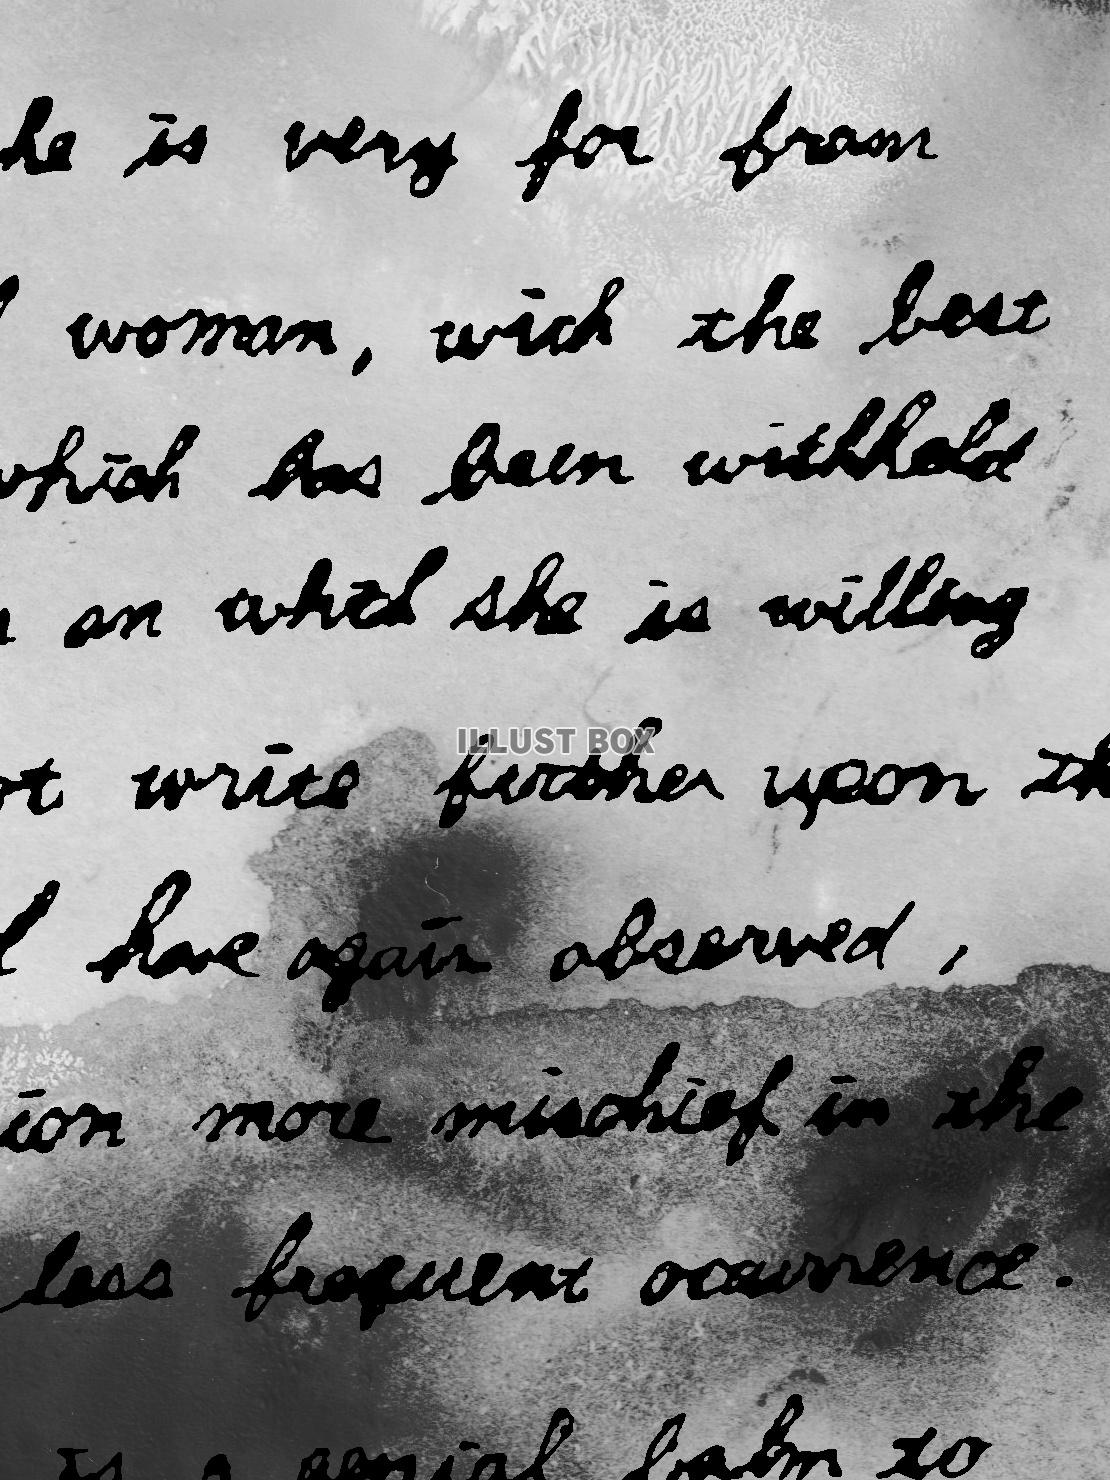 he is very for from
woman, wich the best
which has been withheld
an which she is willing
ot write further upon th
ILLUST BOX
have again observed,
ion more mischief in the
less frequent ocurrence.
is a genial balm to